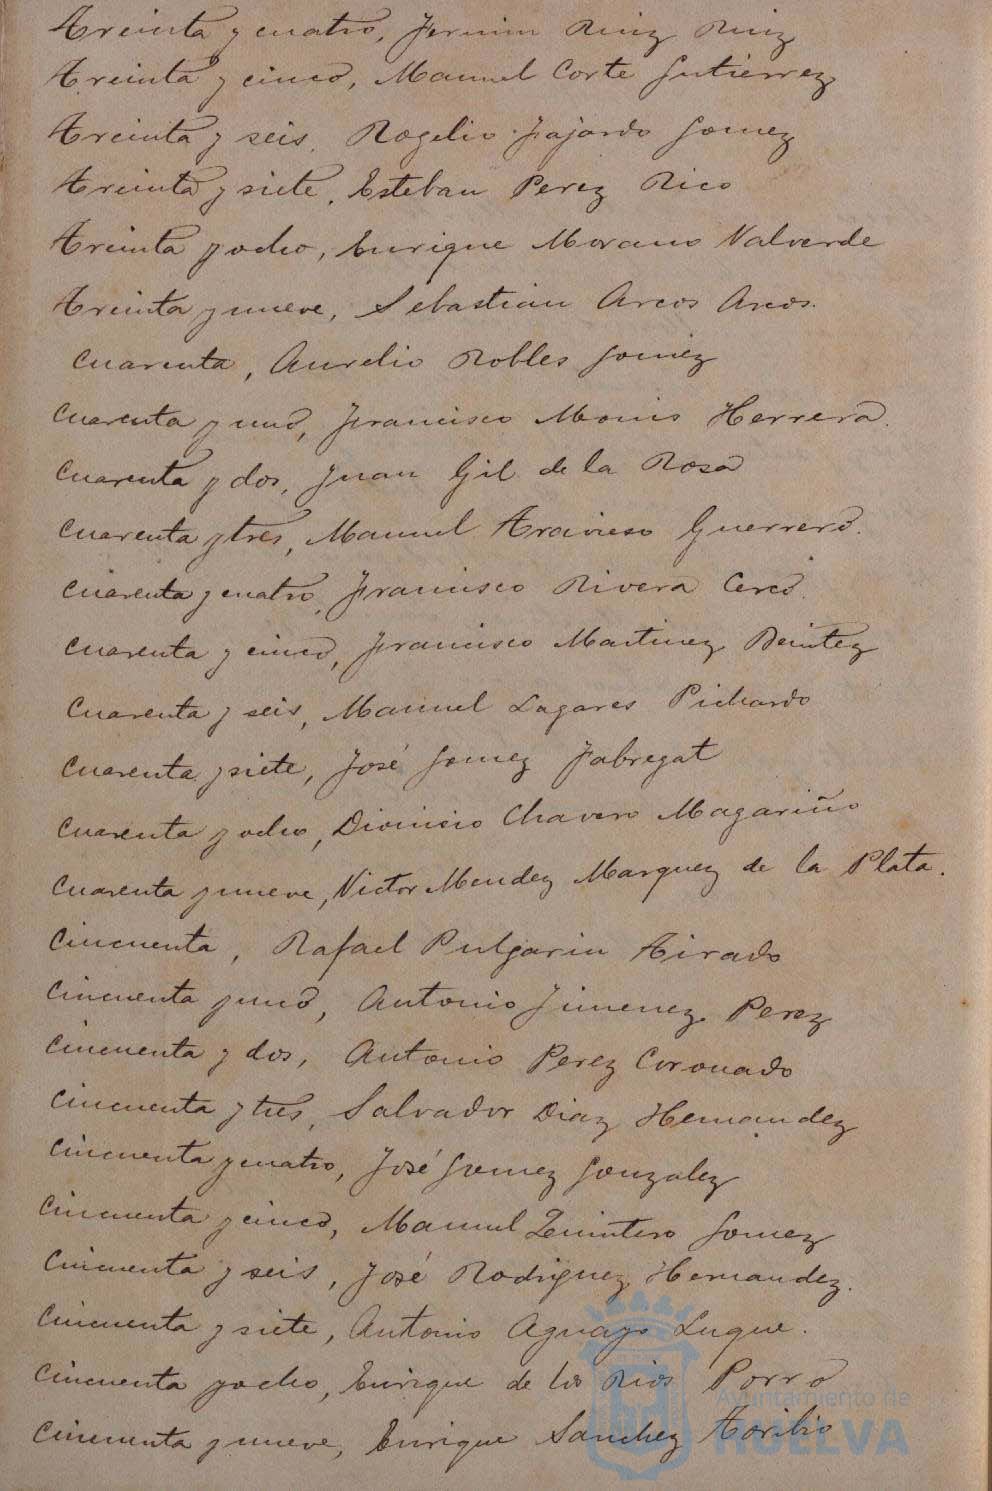 Treinta y cuatro, Fermin Ruiz Ruiz
Treinta y cinco, Manuel Corte Gutierrez
Treinta y seis, Rogelio Fajardo Gomez
Treinta y siete, Esteban Perez Rico
Treinta y ocho, Enrique Morano Valverde
Treinta y nueve, Sebastian Arcos Arcos.
Cuarenta, Aurelio Robles Gomez
Cuarenta y uno, Francisco Monis Herrera.
Cuarenta y dos, Juan Gil de la Rosa
Cuarenta y tres, Manuel Travieso Guerrero.
Cuarenta y cuatro, Francisco Rivera Cerco.
Cuarenta y cinco, Francisco Martinez Benitez
Cuarenta y seis, Manuel Lagares Pichardo
Cuarenta y siete, José Gomez Fabregat
Cuarenta y ocho, Dionisio Chavero Magariño
Cuarenta y nueve, Victor Mendez Marquez de la Plata.
Cincuenta, Rafael Pulgarin Tirado
Cincuenta y uno, Antonio Jimenez Perez
Cincuenta y dos, Antonio Perez Coronado
Cincuenta y tres, Salvador Diaz Hernandez
Cincuenta y cuatro, José Gomez Gonzalez
Cincuenta y cinco, Manuel Quintero Gomez
Cincuenta y seis, José Rodriguez Hernandez.
Cincuenta y siete, Antonio Aguayo Luque.
Cincuenta y ocho, Enrique de los Rios Porro
Cincuenta y nueve, Enrique Sanchez Toribio
Ayuntamiento de
HUELVA